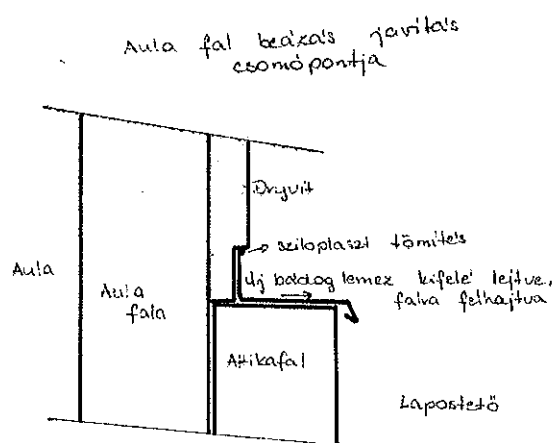 Aula fal beázás javítás
csomópontja
Dryvit
sziloplaszt tömítés
Új bádog lemez kifelé lejtve,
falra felhajtva
Aula
Aula
fala
Attikafal
Lapostető